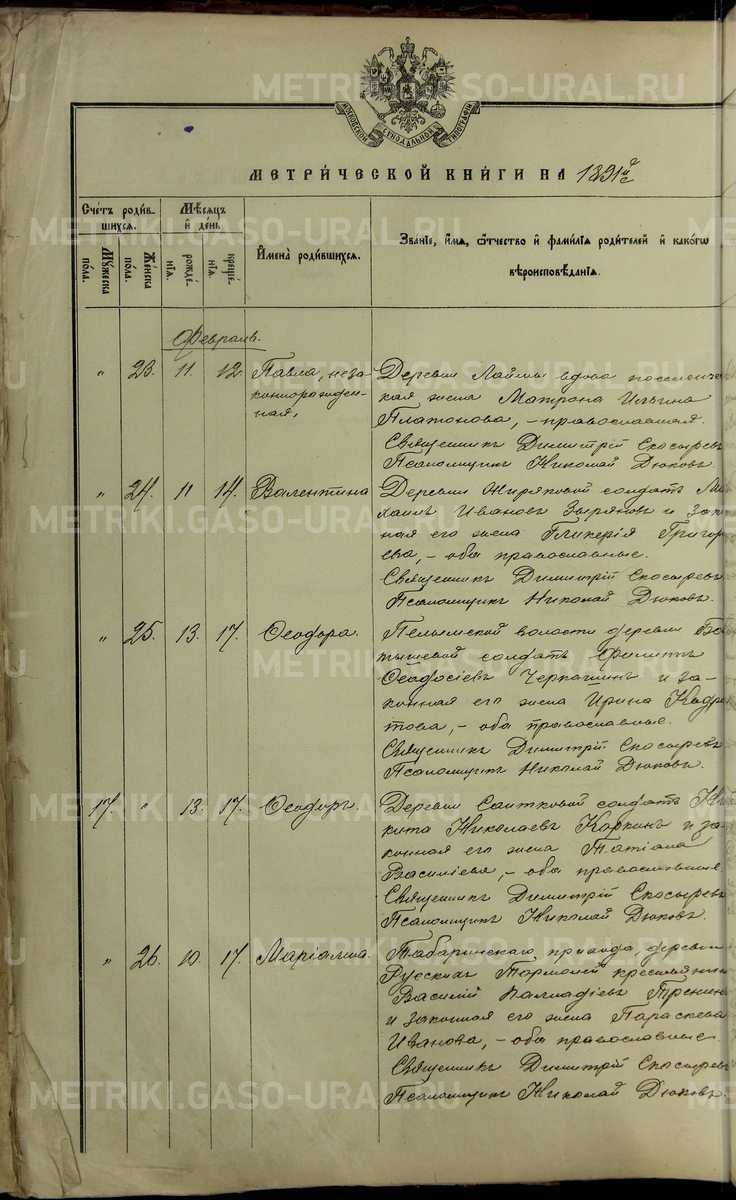 МОСКОВСКОЙ СѴНОДАЛЬНОЙ ТИПОГРАФІИ
МЕТРИ́ЧЕСКОЙ КНИ́ГИ НА 1891й г
Сче́тъ роди́в-
шихся.
Мѣ́сяцъ
и҆ де́нь
И҆мена̀ роди́вшихся.
Зва́нїе, и҆́мя, ѻ҆́тчество и҆ фами́лїя роди́телей и҆ како́гѡ
вѣроисповѣ́данїя.
Му́жеска
по́ла.
Же́нска
по́ла.
рожде́-
нїя.
креще́-
нїя.
Февраль.
„ 23. 11 12. Павла, неза-
конорожден-
ная,
Деревни Лаймы вдова поселенче-
кая жена Матрона Ильина
Платонова, – православная.
Священникъ Димитрій Скосыревъ
Псаломщикъ Николай Дюковъ.
„ 24. 11 14. Валентина
Деревни Жиряковой солдатъ Ми
хаилъ Ивановъ Зыряновъ и зак
ная его жена Гликерія Григор
ева, – оба православные.
Священникъ Димитрій Скосыревъ
Псаломщикъ Николай Дюковъ.
„ 25. 13. 17. Ѳеодора.
Пелымской волости деревни
солдатъ Филиппъ
Ѳеодосіевъ и за-
конная его жена Ирина
– оба православные.
Священникъ Димитрій Скосыревъ
Псаломщикъ Николай Дюковъ.
17. „ 13. 17. Ѳеодоръ.
Деревни Саитковой солдатъ Ни
кита Николаевъ Каркинъ и за-
конная его жена Татіана
Василіева, – оба православные
Священникъ Димитрій Скосыревъ
Псаломщикъ Николай Дюковъ.
„ 26. 10. 17. Маріамна.
Табаринскаго прихода, деревни
Русскихъ крестьянинъ
Василій Палладіевъ
и законная его жена Параскева
Иванова, – оба православные.
Священникъ Димитрій Скосыревъ
Псаломщикъ Николай Дюковъ.
METRIKI.GASO-URAL.RU